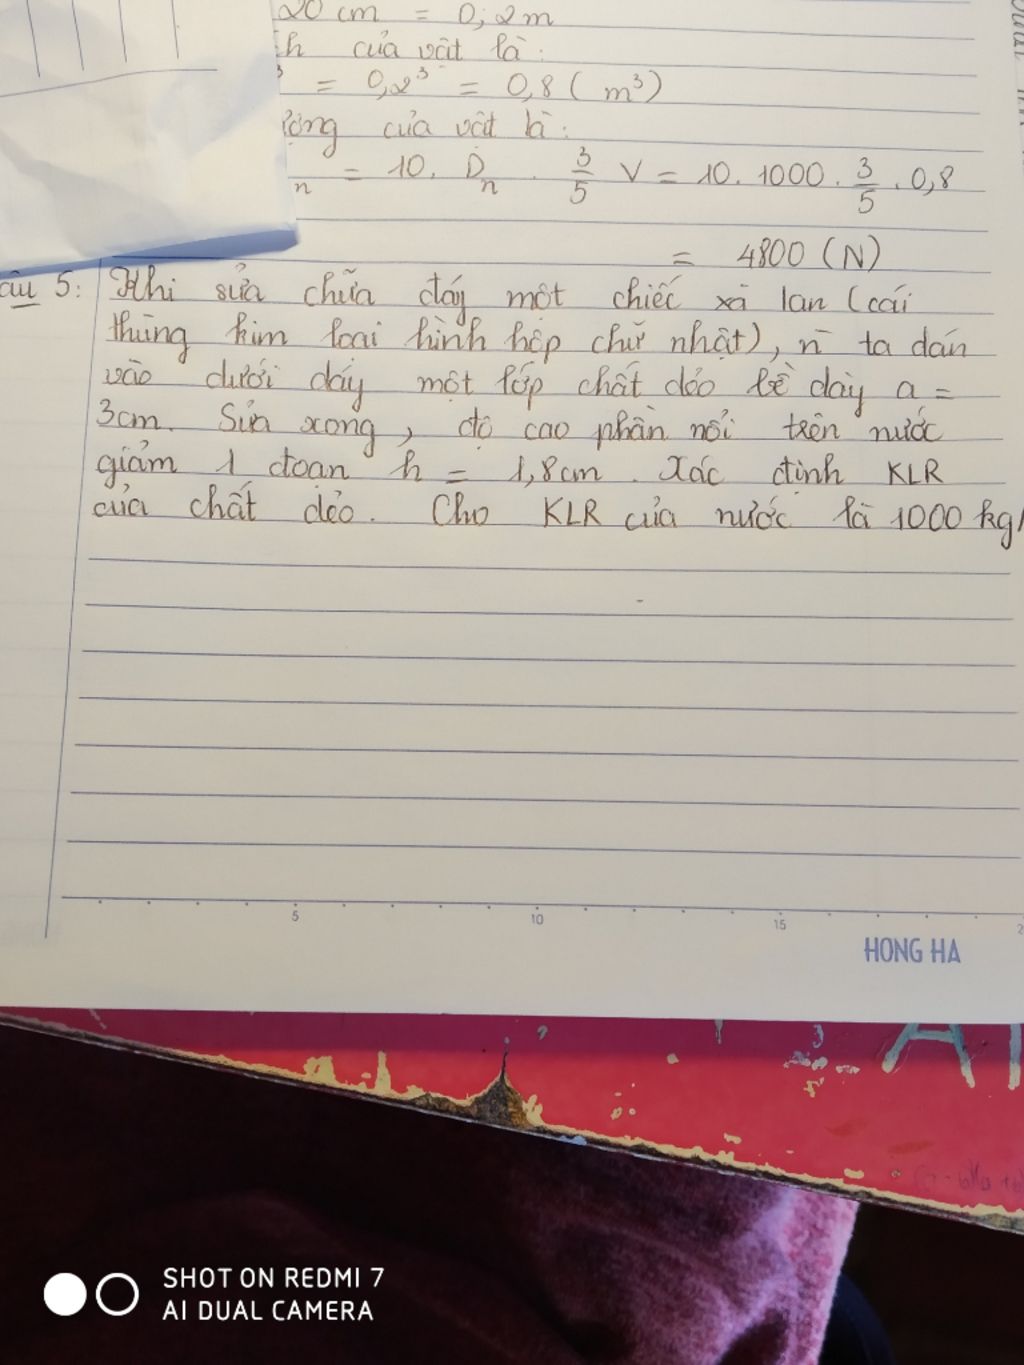 20 cm = 0,2m
của vật là:
= 0,2³ = 0,8 ( m³)
của vật là:
n = 10. Dn . 3/5 V = 10. 1000. 3/5 . 0,8
= 4800 (N)
5: Khi sửa chữa đáy một chiếc xà lan (cái
thùng kim loại hình hộp chữ nhật), n ta dán
vào dưới đáy một lớp chất dẻo bề dày a =
3cm. Sửa xong, độ cao phần nổi trên nước
giảm 1 đoạn h = 1,8cm. Xác định KLR
của chất dẻo. Cho KLR của nước là 1000 kg/
5 10 15
HONG HA
SHOT ON REDMI 7
AI DUAL CAMERA